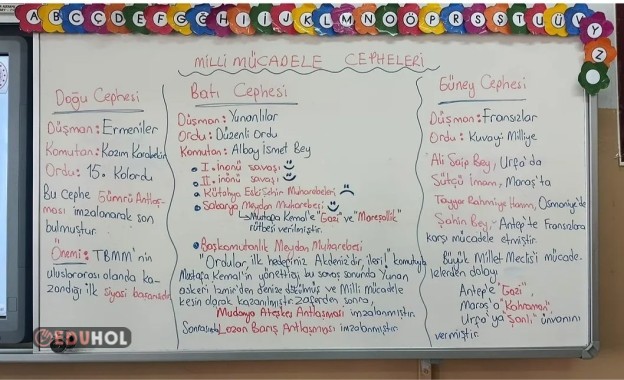 A B C Ç D E F G Ğ H I İ J K L M N O Ö P R S Ş T U Ü V Y Z
MİLLİ MÜCADELE CEPHELERİ
Doğu Cephesi
Düşman: Ermeniler
Komutan: Kazım Karabekir
Ordu: 15. Kolordu
Bu cephe Gümrü Antlaş-
ması imzalanarak son
bulmuştur.
Önemi: TBMM'nin
uluslararası alanda ka-
zandığı ilk siyasi başarısıdır.
Batı Cephesi
Düşman: Yunanlılar
Ordu: Düzenli Ordu
Komutan: Albay İsmet Bey
I. inönü savaşı
II. inönü savaşı
Kütahya Eskişehir Muharebeleri
Sakarya Meydan Muharebesi
Mustafa Kemal'e "Gazi" ve "Mareşallik"
rütbesi verilmiştir.
Başkomutanlık Meydan Muharebesi
"Ordular, ilk hedefiniz Akdenizdir, ileri!" komutuyla
Mustafa Kemal'in yönettiği bu savaş sonunda Yunan
askeri İzmir'den denize dökülmüş ve Milli Mücadele
kesin olarak kazanılmıştır. Zaferden sonra,
Mudanya Ateşkes Antlaşması imzalanmıştır.
Sonrasında Lozan Barış Antlaşması imzalanmıştır.
Güney Cephesi
Düşman: Fransızlar
Ordu: Kuvayi Milliye
Ali Saip Bey, Urfa'da
Sütçü İmam, Maraş'ta
Tayyar Rahmiye Hanım, Osmaniye'de
Şahin Bey, Antep'te Fransızlara
karşı mücadele etmiştir.
Büyük Millet Meclisi mücade-
lelerden dolayı
Antep'e "Gazi"
Maraş'a "Kahraman"
Urfa'ya "Şanlı" ünvanını
vermiştir.
EDUHOL